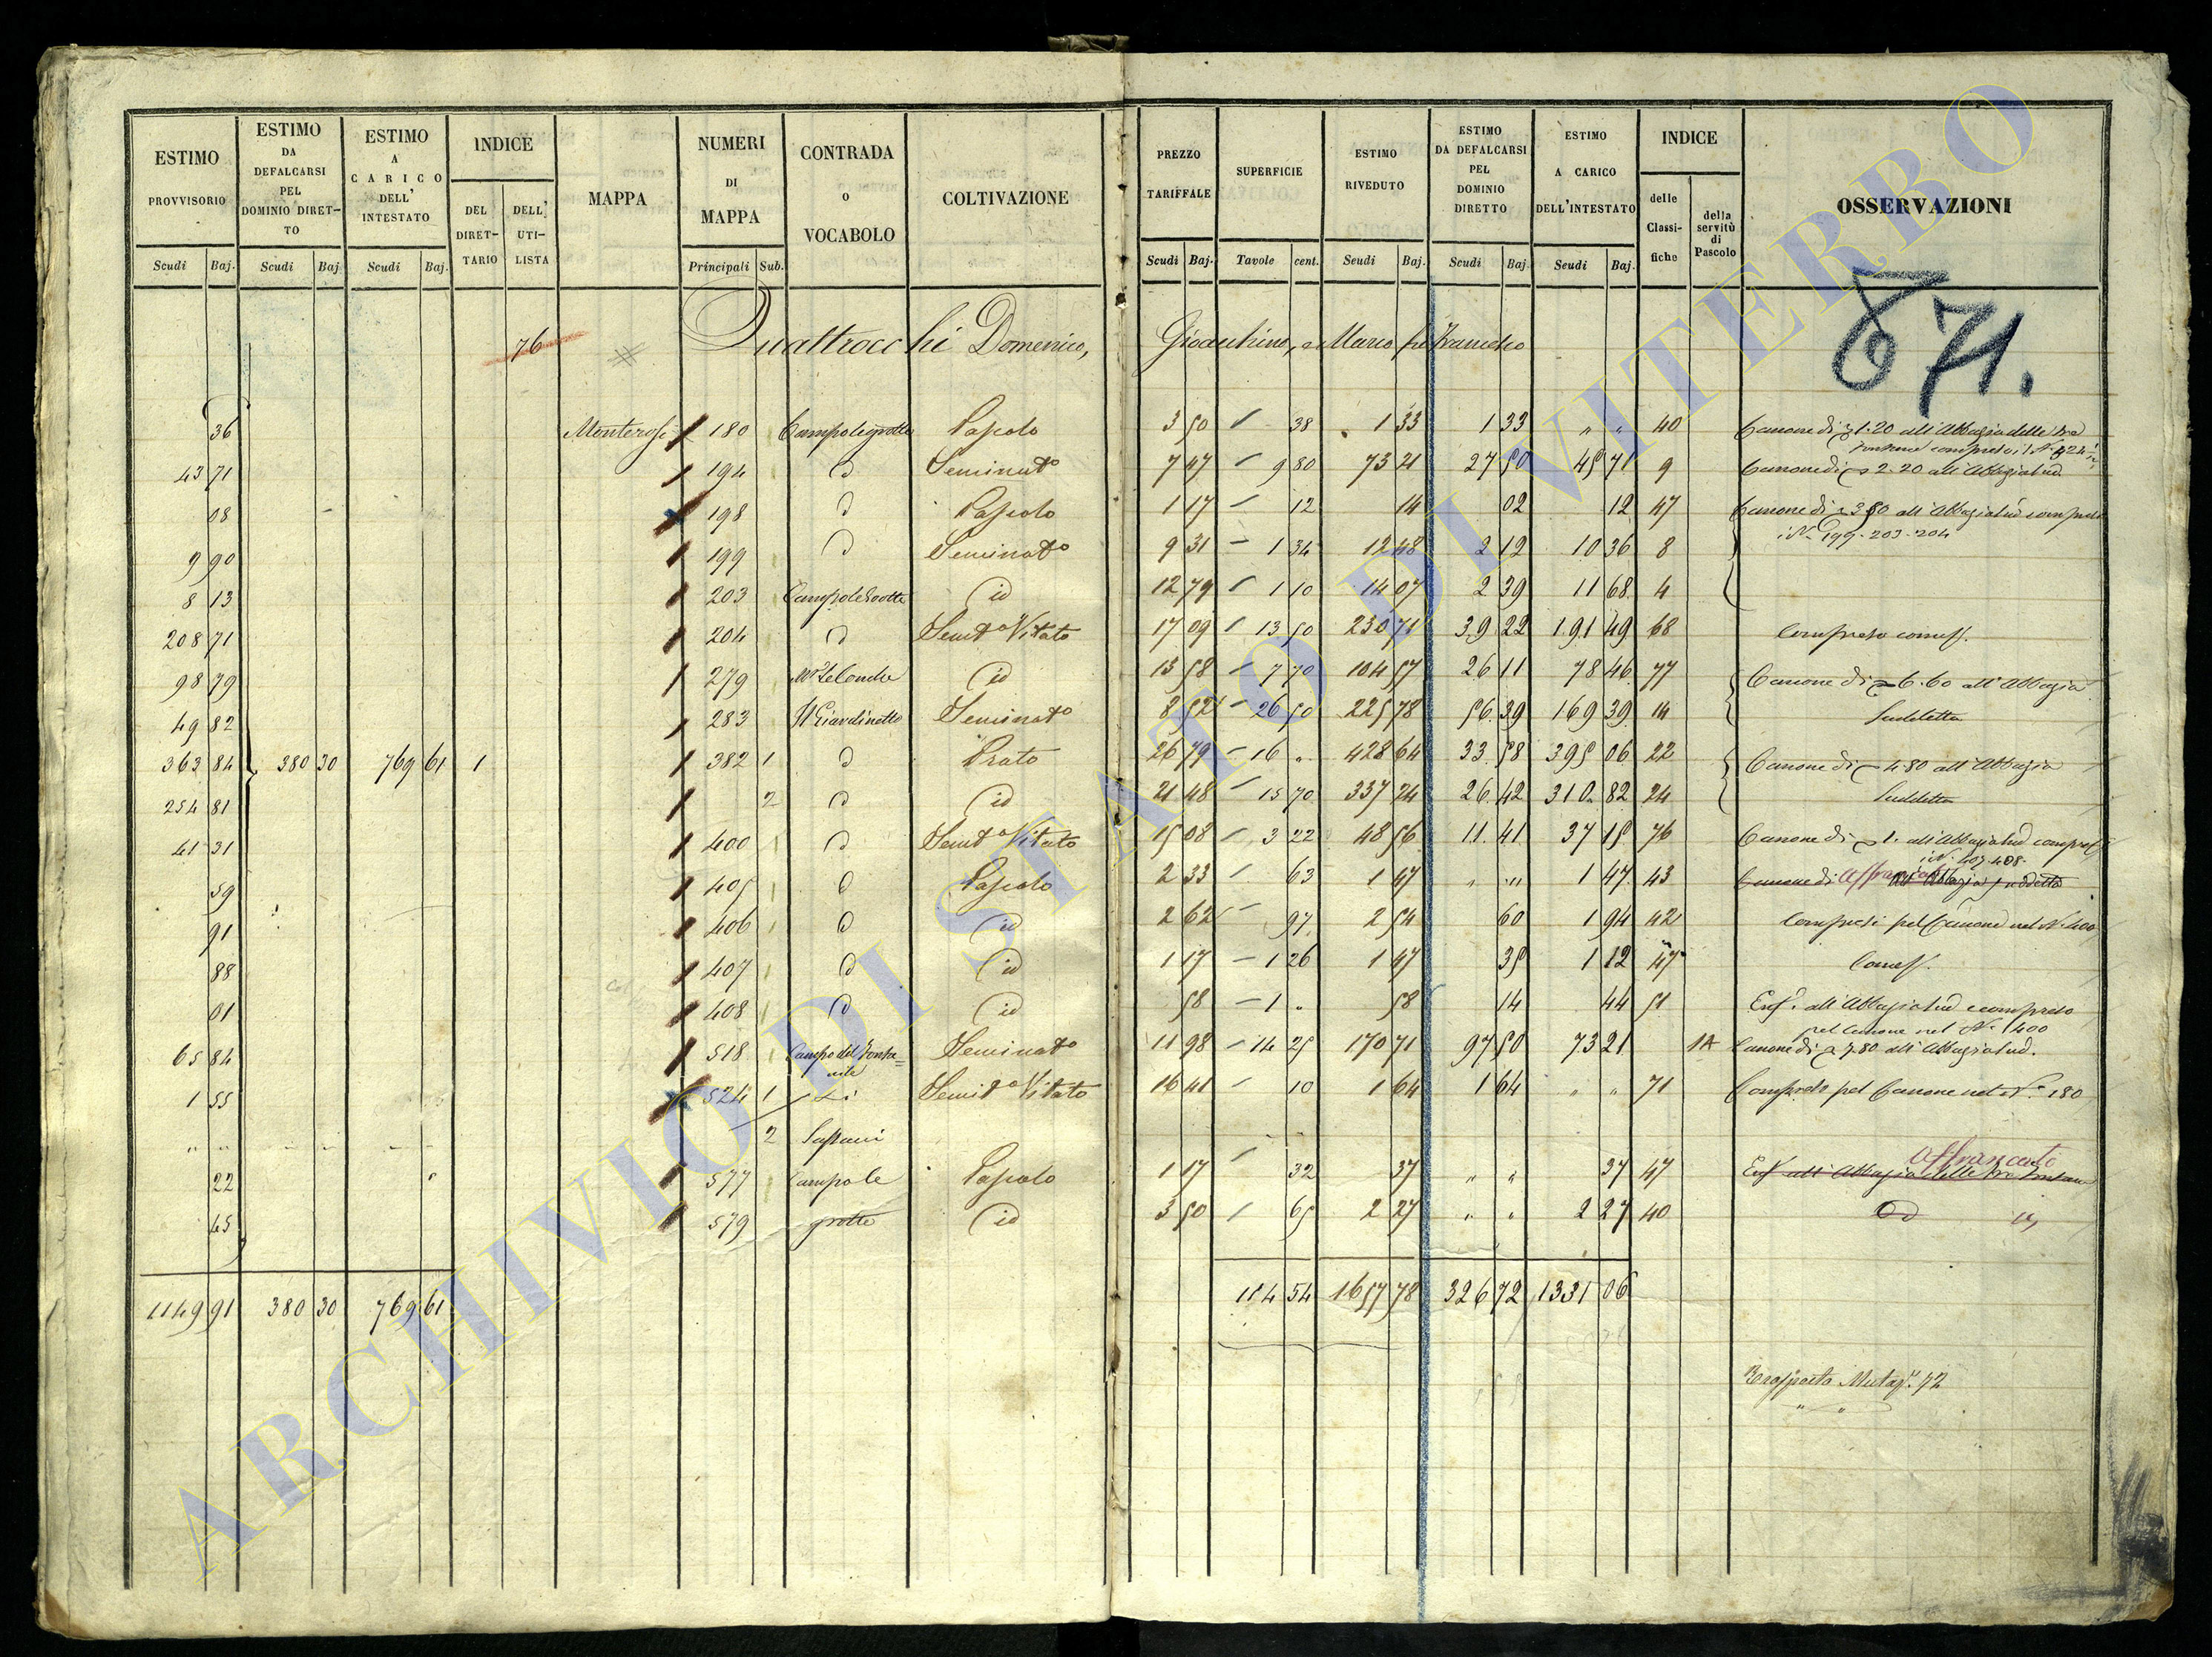 ESTIMO PROVVISORIO Scudi Baj.
ESTIMO DA DEFALCARSI PEL DOMINIO DIRETTO Scudi Baj
ESTIMO A CARICO DELL' INTESTATO Scudi Baj.
INDICE DEL DIRETTARIO DELL' UTILISTA
MAPPA
NUMERI DI MAPPA Principali Sub.
CONTRADA o VOCABOLO
COLTIVAZIONE
PREZZO TARIFFALE Scudi Baj.
SUPERFICIE Tavole cent.
ESTIMO RIVEDUTO Scudi Baj.
ESTIMO DA DEFALCARSI PEL DOMINIO DIRETTO Scudi Baj
ESTIMO A CARICO DELL'INTESTATO Scudi Baj.
INDICE delle Classifiche della servitù di Pascolo
OSSERVAZIONI
671.
76 Quattrocchi Domenico, Gioacchino, e Marco
36 180 Pascolo 3 50 38 1 33 1 33 " " 40 Canone di 1.20 all'Abbazia delle tre
43 71 194 d Seminat° 7 47 9 80 73 21 27 50 45 71 9 Canone di 2.20 all'Abbazia sud
08 198 d Pascolo 1 17 12 14 02 12 47 Canone di 3 50 all'Abbazia sud compresi
i N. 199. 203. 204
9 90 199 d Seminat° 9 31 1 34 12 48 2 12 10 36 8
8 13 203 id 12 79 1 10 14 07 2 39 11 68 4
208 71 204 d Semt° Vitato 17 09 13 50 230 71 39 22 191 49 68 Compreso
98 79 279 id 13 58 7 70 104 57 26 11 78 46 77 Canone di 6.60 all'Abbazia
Suddetta
49 82 283 Il Giardinetto Seminat° 8 52 26 50 225 78 56 39 169 39 14
363 84 380 30 769 61 1 382 1 d Prato 26 79 16 " 428 64 33 58 395 06 22 Canone di 4.80 all'Abbazia
Suddetta
254 81 2 d id 21 48 15 70 337 24 26 42 310 82 24
41 31 400 d Semt° Vitato 15 08 3 22 48 56 11 41 37 15 76 Canone di 1. all'Abbazia sud
59 405 d Pascolo 2 33 63 1 47 " " 1 47 43 Canone di all'Abbazia suddetta
91 406 d id 2 62 97 2 54 60 1 94 42 Compresi pel Canone nel N. 400
88 407 d id 1 17 1 26 1 47 35 1 12 47
01 408 d id 58 1 " 58 14 44 51 all'Abbazia sud compreso
pel Canone nel N. 400
65 84 518 Campo del Fontanile Seminat° 11 98 14 25 170 71 97 50 73 21 1A Canone di 7.80 all'Abbazia sud.
1 55 524 1 Semt° Vitato 16 41 10 1 64 1 64 " " 71 Compreso pel Canone nel N. 180
2
Affrancato
22 577 Campo le Pascolo 1 17 32 37 " " 37 47 all'Abbazia delle tre Fontane
45 579 grotte id 3 50 65 2 27 " " 2 27 40 id
1149 91 380 30 769 61 114 54 1657 78 326 72 1331 06
ARCHIVIO DI STATO DI VITERBO